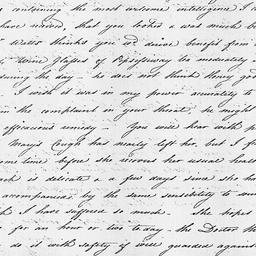 containing the most welcome intelligence I
have received, that you looked a was much
Wells thinks you wd derive benefit from
Wine Glasses of Pipsyſsway too moderately
during the day - he does not think they
I wish it was in my power accurately to
the complaint in your throat, he might
efficacious remedy - You will hear with
Mary's Cough has nearly left her, but I
some time before she recovers her usual health
is delicate. a few days since she
accompanied by the same sensibility to
I have suffered so much - She hopes
for an hour or two to day - the Doctor
do it with safety if well guarded against